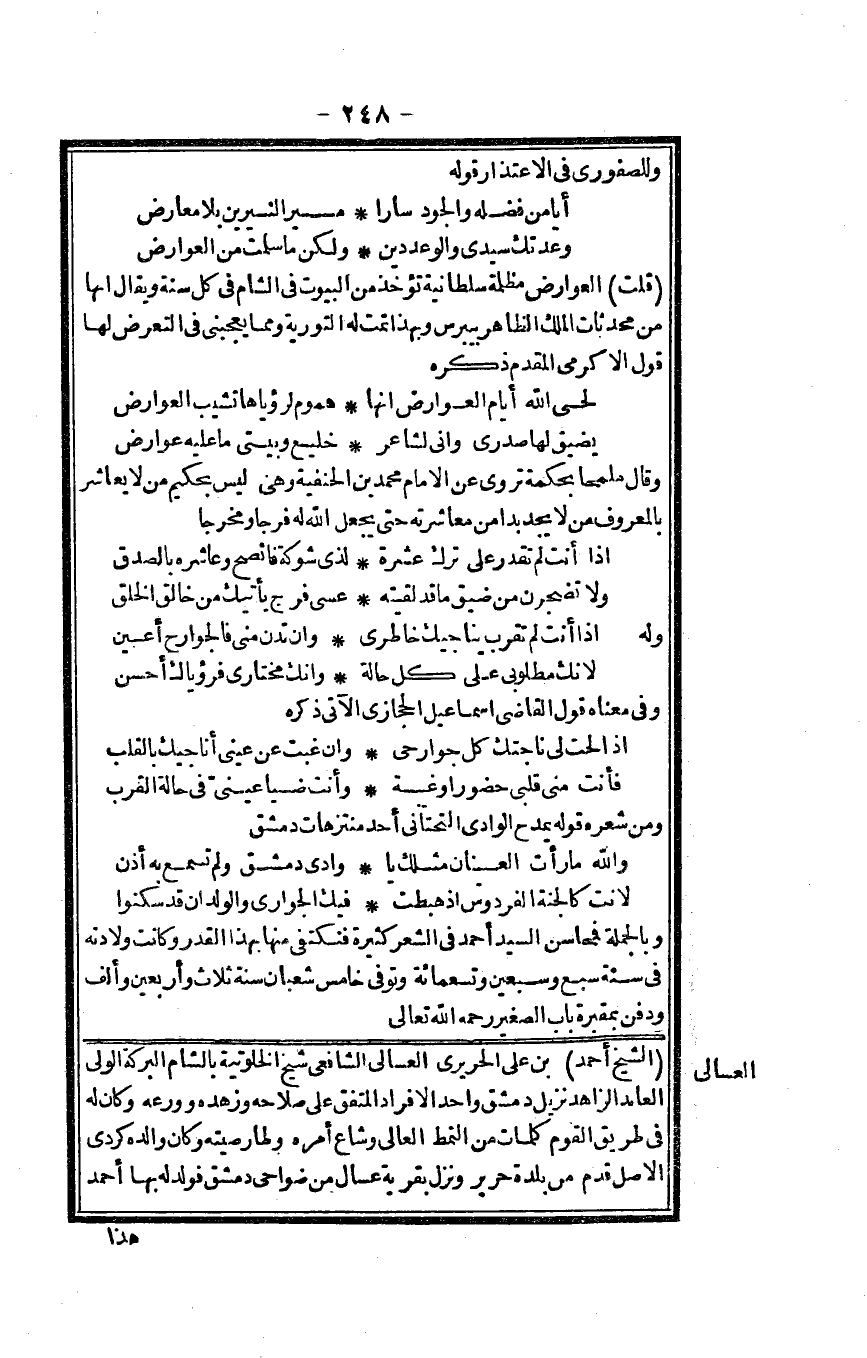 - ٢٤٨ -
وللصفورى فى الاعتذار قوله
أيا من فضله والجود سارا * مسير النيرين بلا معارض
وعدتك سيدى والوعد دين * ولكن ما سلمت من العوارض
(قلت) العوارض مظلمة سلطانية تؤخذ من البيوت فى الشام فى كل سنة ويقال انها
من محدثات الملك الظاهر بيبرس وبهذا تمت له التورية ومما يعجبنى فى التعرض لها
قول الاكرمى المقدم ذكره
لحى الله أيام العوارض انها * هموم لرؤياها تشيب العوارض
يضيق لها صدرى وانى لشاعر * خليع وبيتى ما عليه عوارض
وقال ملمحا بحكمة تروى عن الامام محمد بن الحنفية وهى ليس بحكيم من لا يعاشر
بالمعروف من لا يجد بدا من معاشرته حتى يجعل الله له فرجا ومخرجا
اذا أنت لم تقدر على ترك عشرة * لذى شوكة فانصح وعاشره بالصدق
ولا تضجرن من ضيق ما قد لقيته * عسى فرج يأتيك من خالق الخلق
وله اذا أنت لم تقرب يناجيك خاطرى * وان تدن منى فالجوارح أعين
لانك مطلوبى على كل حالة * وانك مختارى فرؤياك أحسن
وفى معناه قول القاضى اسماعيل الحجازى الآتى ذكره
اذا لحت لى ناجتك كل جوارحى * وان غبت عن عينى أناجيك بالقلب
فأنت منى قلبى حضورا وغيبة * وأنت ضيا عينى فى حالة القرب
ومن شعره قوله يمدح الوادى التحتانى أحد منتزهات دمشق
والله ما رأت العينان مثلك يا * وادى دمشق ولم تسمع به أذن
لانت كالجنة الفردوس اذ هبطت * فيك الجوارى والولدان قد سكنوا
وبالجملة فمحاسن السيد أحمد فى الشعر كثيرة فنكتفى منها بهذا القدر وكانت ولادته
فى سنة سبع وسبعين وتسعمائة وتوفى خامس شعبان سنة ثلاث وأربعين وألف
ودفن بمقبرة باب الصغير رحمه الله تعالى
(الشيخ أحمد) بن على الحريرى العسالى الشافعى شيخ الخلوتية بالشام البركة الولى
العسالى
العابد الزاهد نزيل دمشق واحد الافراد المتفق على صلاحه وزهده وورعه وكان له
فى طريق القوم كلمات من النمط العالى وشاع أمره وطار صيته وكان والده كردى
الاصل قدم من بلدة حرير ونزل بقرية عسال من ضواحى دمشق فولد له بها أحمد
هذا